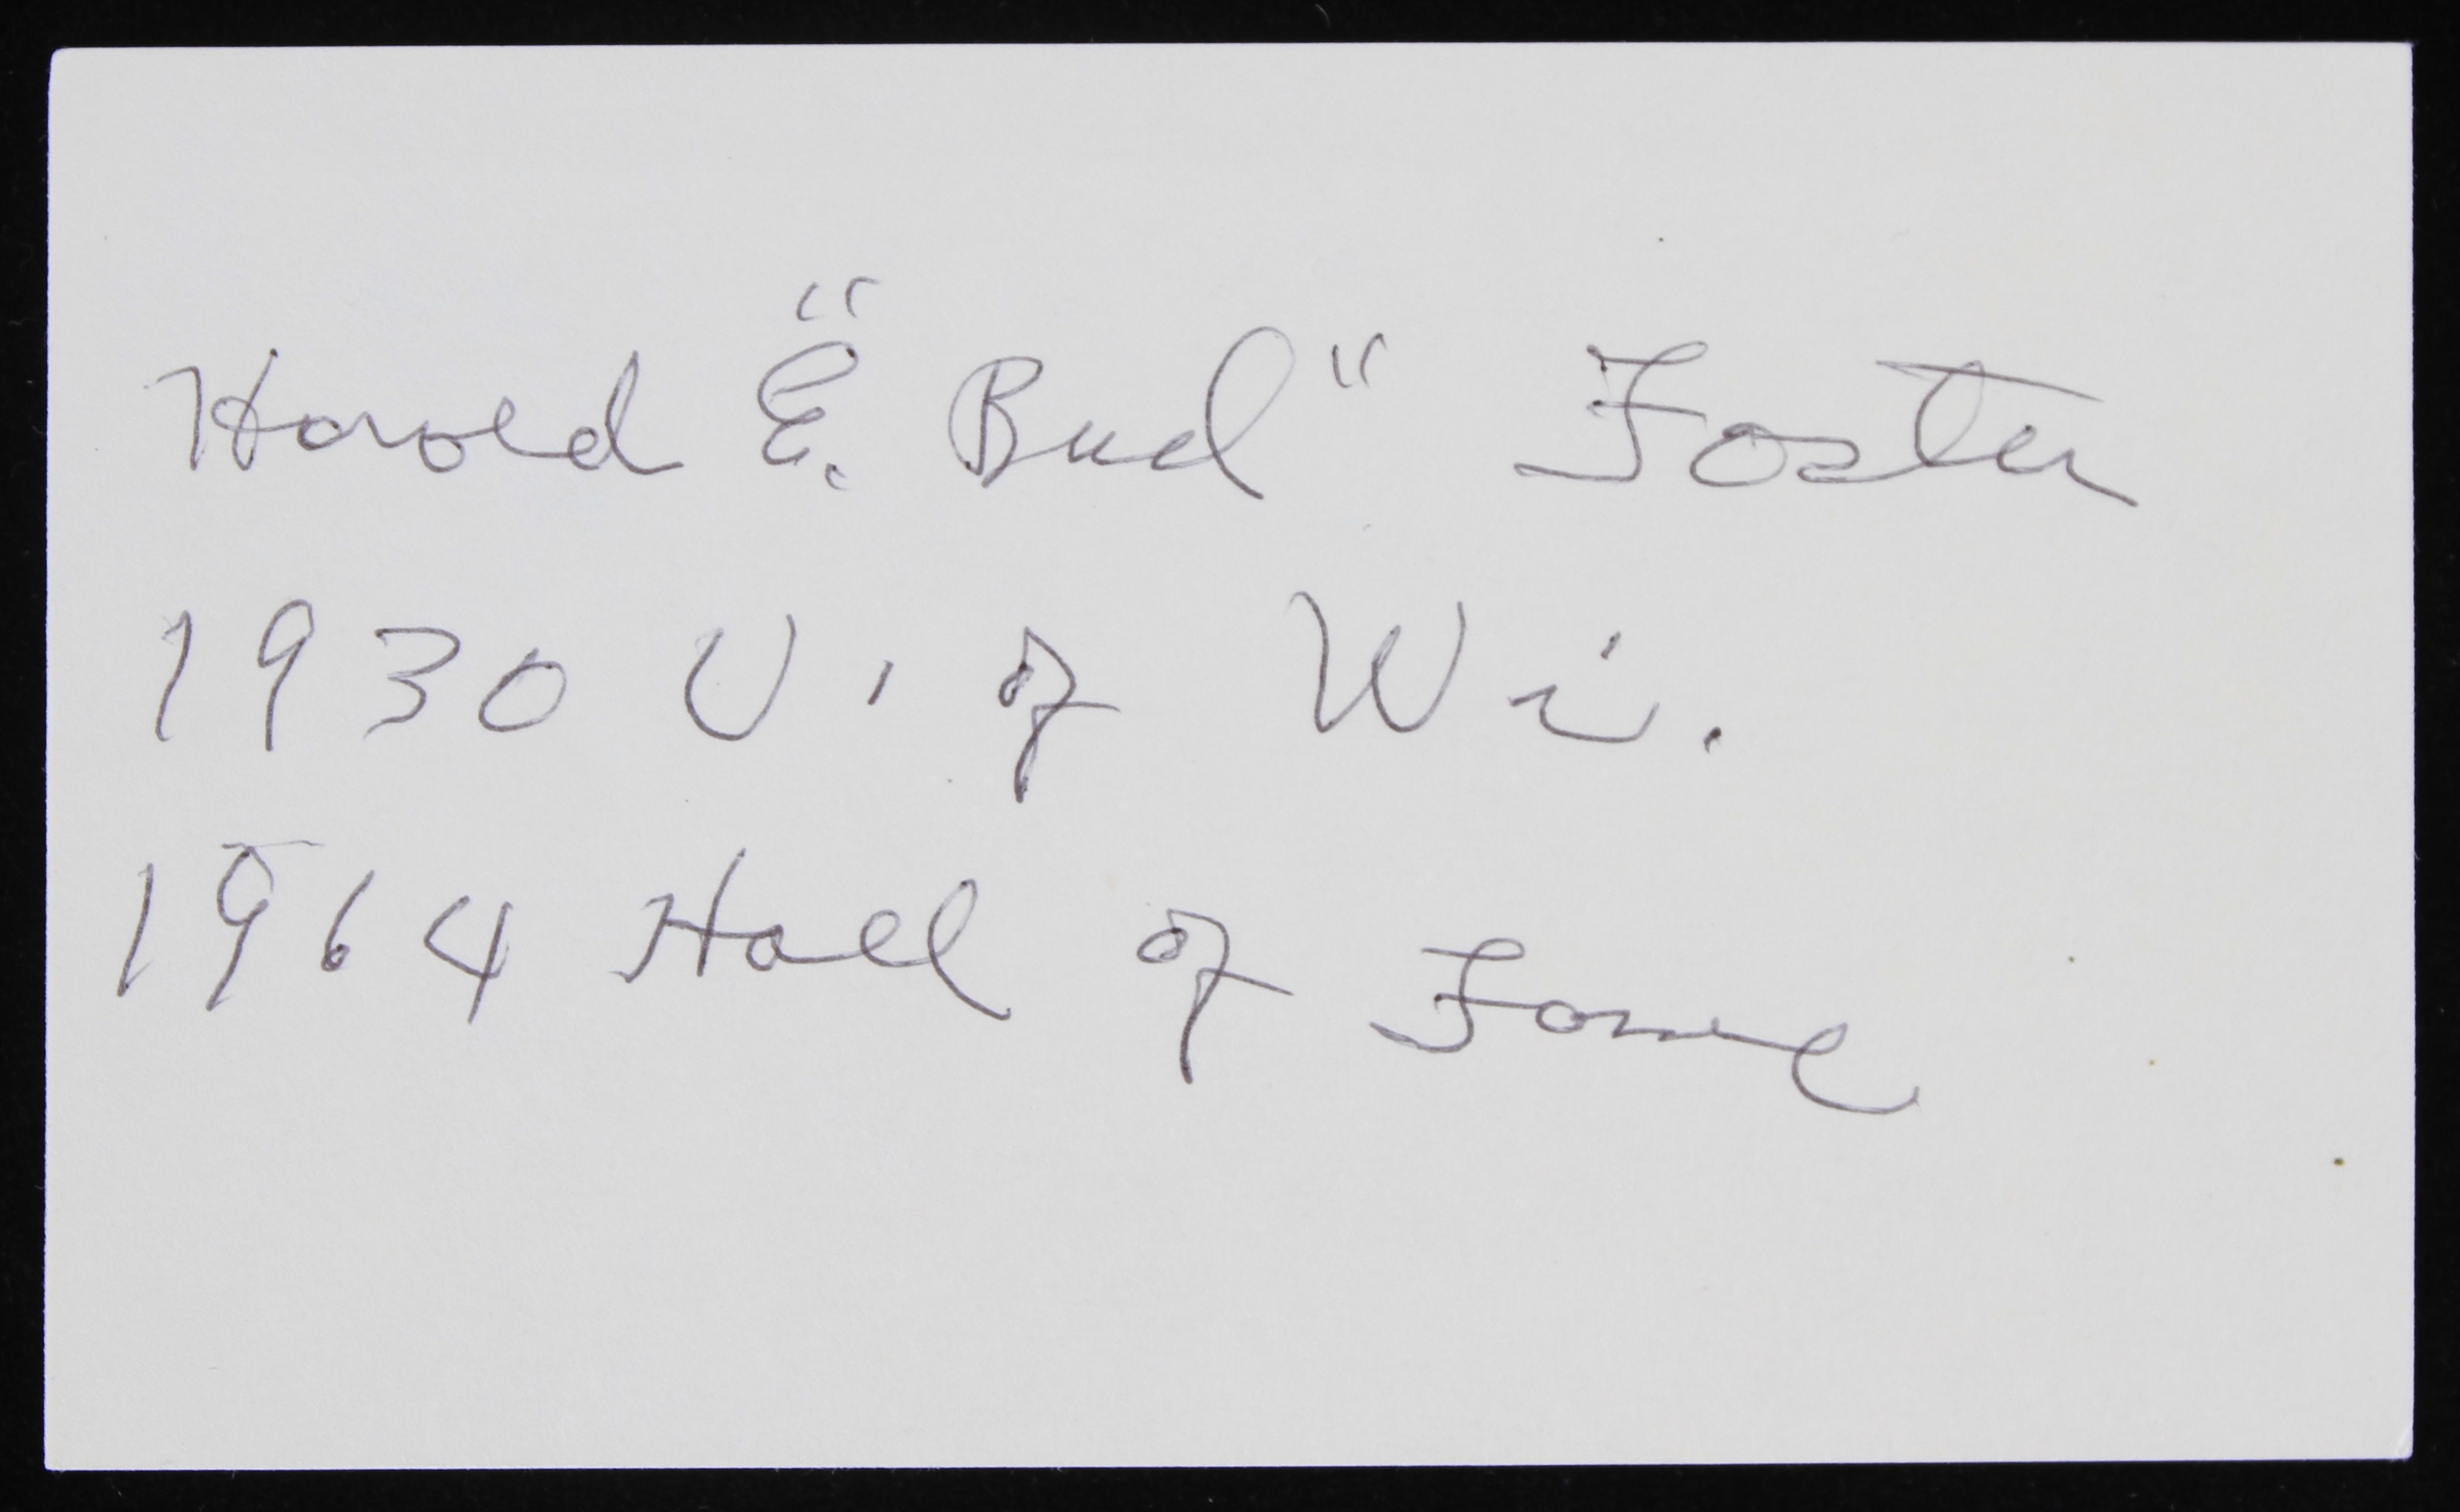 Harold E. "Bud" Foster
1930 U. of Wi.
1964 Hall of Fame